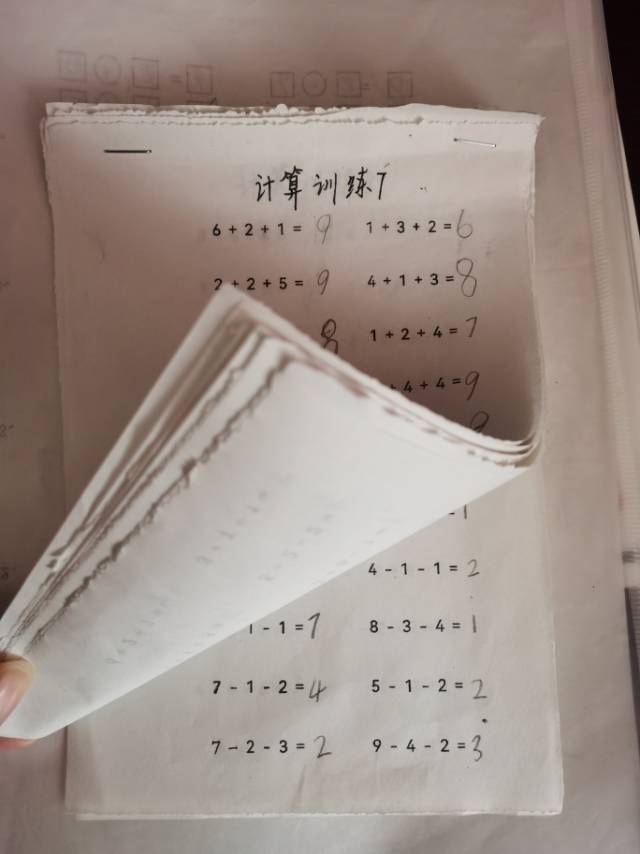 计算训练7
6 + 2 + 1 = 9 1 + 3 + 2 = 6
2 + 2 + 5 = 9 4 + 1 + 3 = 8
8 1 + 2 + 4 = 7
+ 4 + 4 = 9
4 - 1 - 1 = 2
1 - 1 = 7 8 - 3 - 4 = 1
7 - 1 - 2 = 4 5 - 1 - 2 = 2
7 - 2 - 3 = 2 9 - 4 - 2 = 3